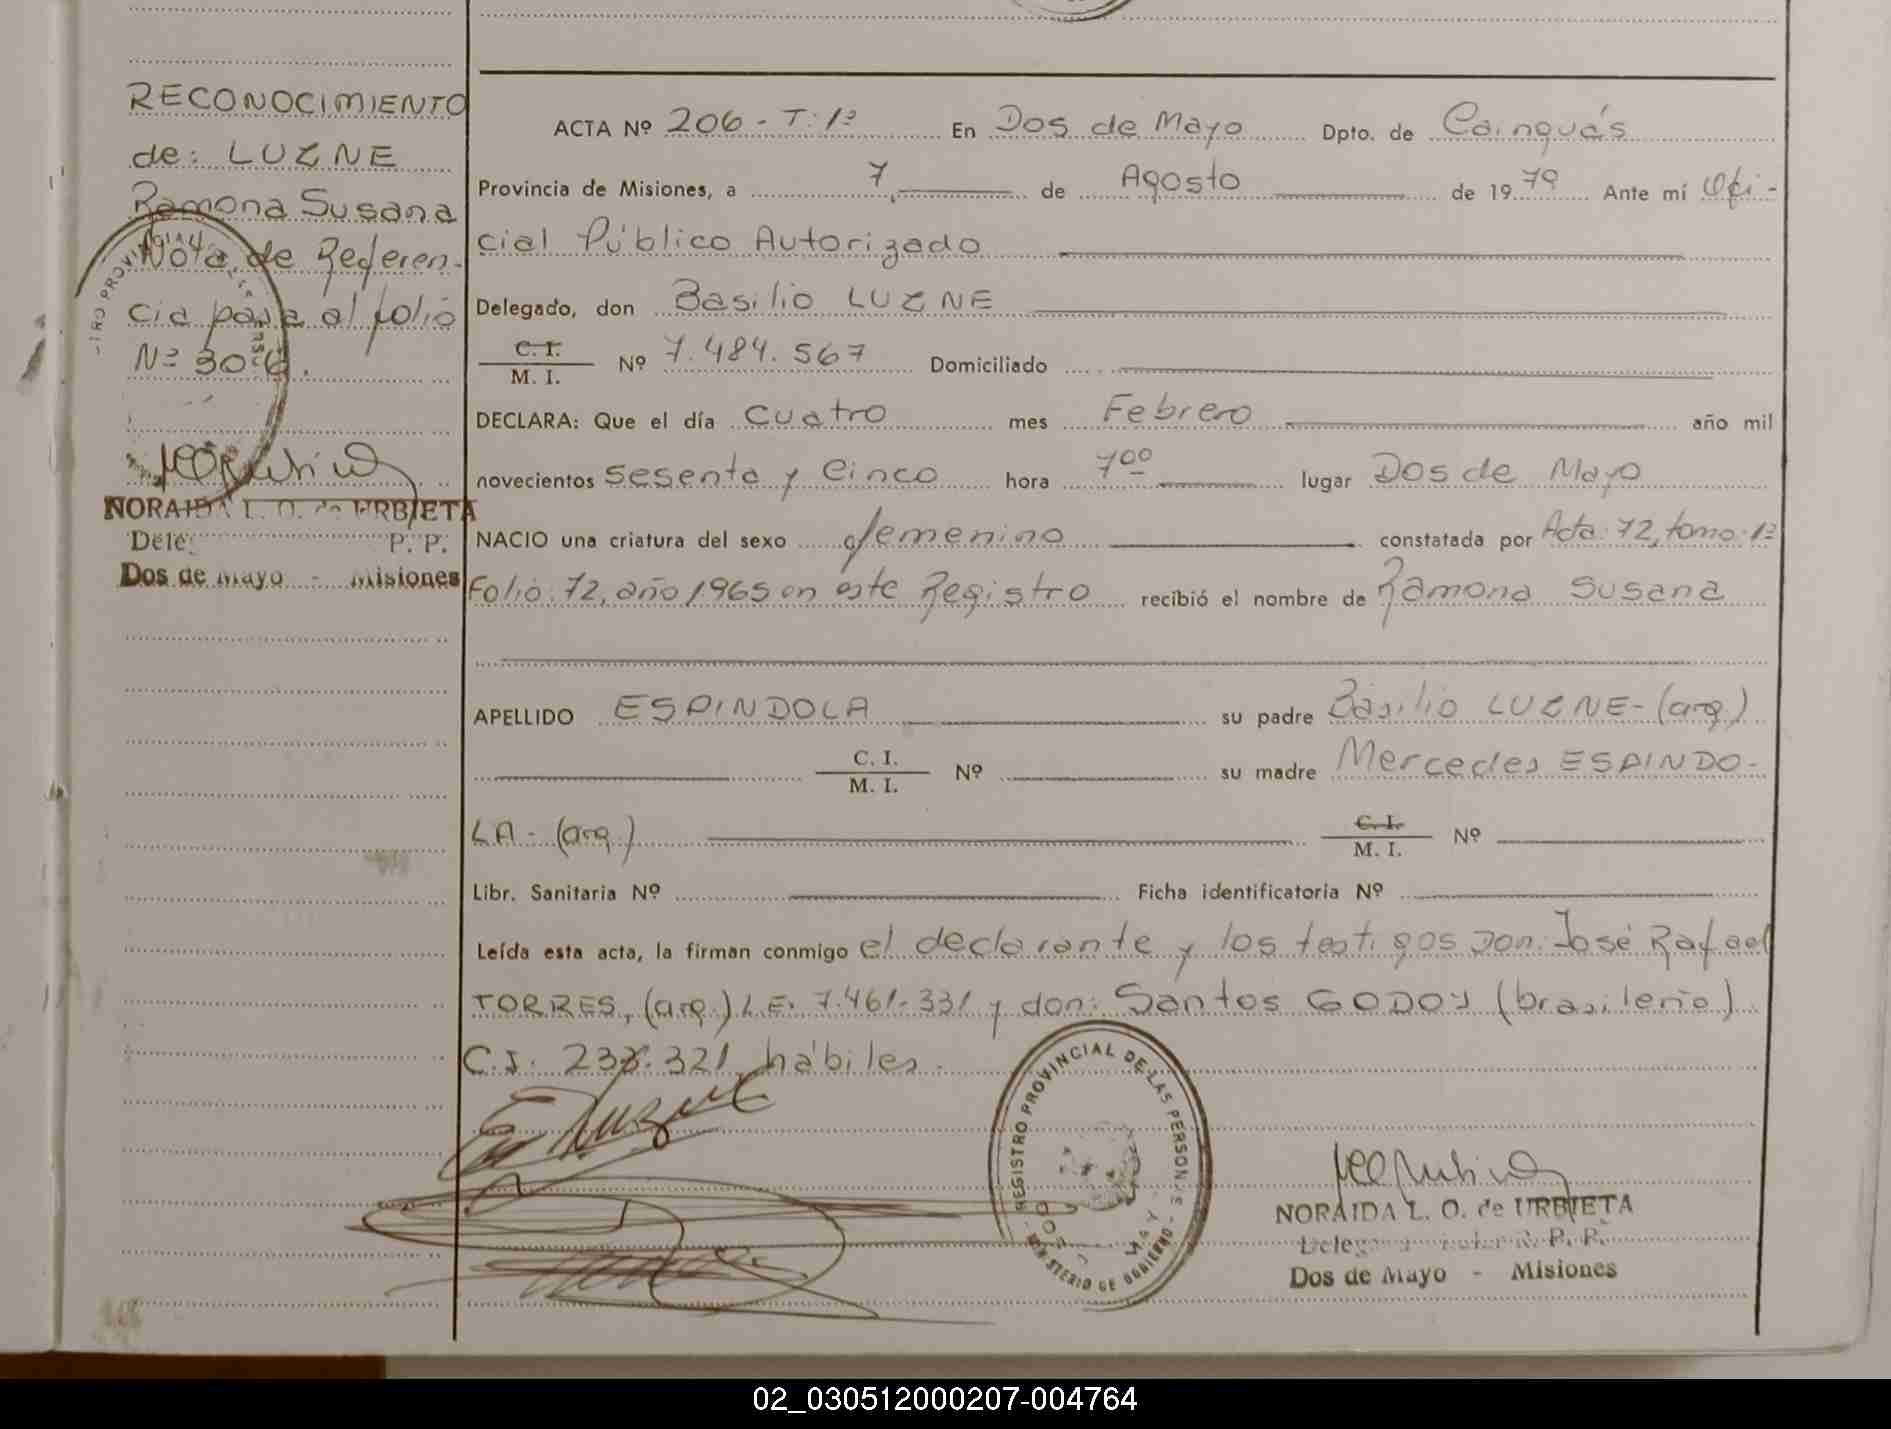 RECONOCIMIENTO
de: LUZNE
Ramona Susana
Nota de Referen-
cia pasa al folio
Nº 306.
NORAIDA L. O. de URBIETA
Dele P. P.
Dos de Mayo - Misiones
ACTA Nº 206 - T: 1º En Dos de Mayo Dpto. de Cainguás
Provincia de Misiones, a 7 de Agosto de 1979 Ante mí Ofi-
cial Público Autorizado
Delegado, don Basilio LUZNE
C. I.
M. I. Nº 7.484.567 Domiciliado
DECLARA: Que el día cuatro mes Febrero año mil
novecientos sesenta y cinco hora 7⁰⁰ lugar Dos de Mayo
NACIO una criatura del sexo femenino constatada por Acta: 72, tomo: 1º
Folio: 72, año 1965 en este Registro recibió el nombre de Ramona Susana
APELLIDO ESPINDOLA su padre Basilio LUZNE - (arg.)
C. I.
M. I. Nº su madre Mercedes ESPINDO-
LA - (arg.) C. I.
M. I. Nº
Libr. Sanitaria Nº Ficha identificatoria Nº
Leída esta acta, la firman conmigo el declarante y los testigos don: José Rafael
TORRES, (arg.) L.E. 7.461.331 y don: Santos GODOY (brasileño)
C.I. 321 hábiles.
REGISTRO PROVINCIAL DE LAS PERSONAS
MINISTERIO DE GOBIERNO
NORAIDA L. O. de URBIETA
R. P. P.
Dos de Mayo - Misiones
02_030512000207-004764